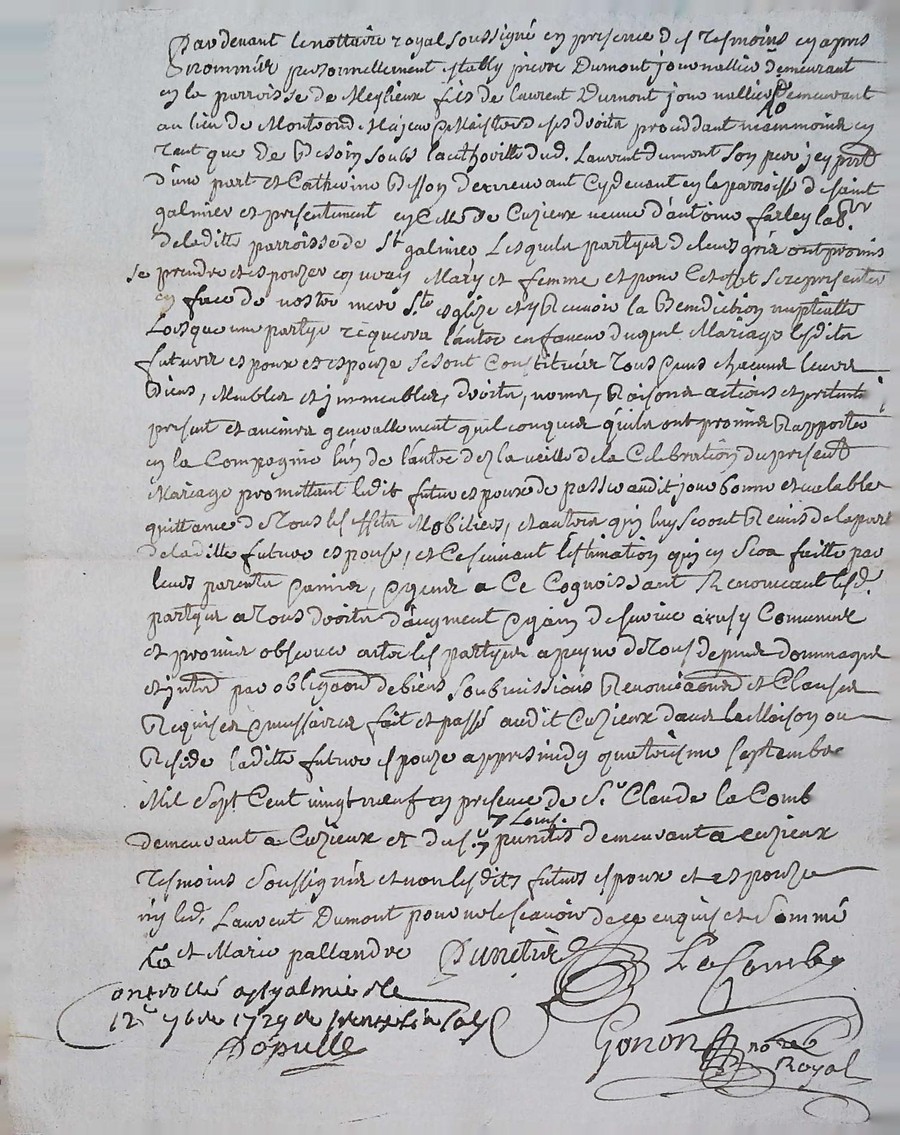 Pardevant le nottaire royal soussigné en presence des tesmoins cy apres
nommés personnellement estably pierre Dumont journallier demeurant
en la parroisse de Meylieux fils de laurent Dumont journallier demeurant
au lieu de Montrond Majeur & Maistre de ses droits procedant neammoins en
tant que de besoin soubs lauthoritté dud. Laurent dumont son pere icy pnt
d'une part et Catherine Besson demeurant cy devant en la parroisse de saint
galmier et presentement en celle de Cuzieux veuve d'antoine farley labr
de laditte parroisse de St galmier Lesquels partyes de leurs grés ont promis
se prendre et espouzer en vrays Mary et femme et pour cet effet se representer
en face de nostre mere Ste esglize et y Recevoir la Benediction nuptialle
Lorsque une partye requerra lautre en faveur duquel Mariage lesdits
futurs espoux et espouze se sont Constitués tous & uns chacuns leurs
Biens, Meubles et immeubles, droits, noms, Raisons actions et pretentions
presents et avenirs generallement quelconques quils ont promis Rapporter
en la Compagnie lun de lautre dez la veille de la Celebration du present
Mariage promettant ledit futur espoux de passer audit jour bonne et vallable
quittance de tous les effets Mobiliers, et autres quil luy seront Remis de la part
de laditte future espouse, et ce suivant lestimation qui en sera faitte par
leurs parents & amis, & gens a Ce Cognoissant Renonceant lesd.
partyes a tous droits d'augment & gain de survie Comme
et promis observer lesd partyes a peyne de tous depens dommages
et intts par obligaon de biens soubmissions Renonciaons et Clauses
Requises & necessaires fait et passé audit Cuzieux dans la Maison ou
Reside laditte future espouze apres midy quatorsieme septembre
Mil sept Cent vingt neuf en presence de Sr Claude la Comb
demeurant a Cuzieux et du sr Louis punctis demeurant a cuzieux
tesmoins soussignés et non lesdits futurs espoux et espouze
ny led. Laurent Dumont pour ne le scavoir de ce enquis et sommé
et Marie pallandre Punctis LaComb
Controllé a St galmier le
7bre 1729
Dépulle
Gonon nore
Royal